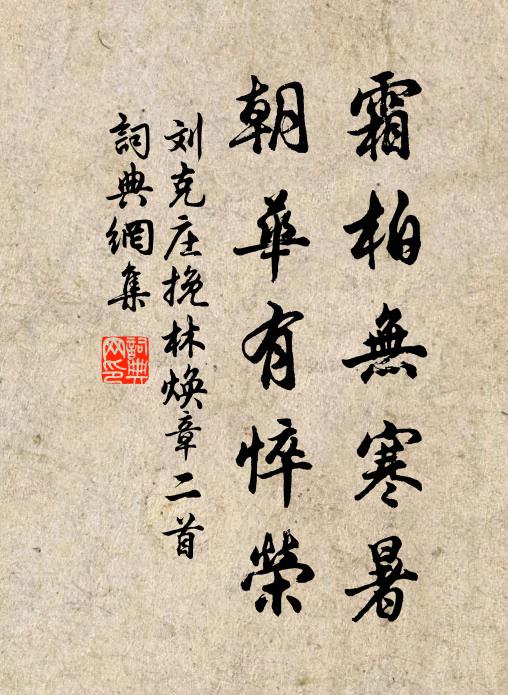 霜柏無寒暑
朝華有悴榮
刘克庄挽林焕章二首
詞典網集
詞典網印